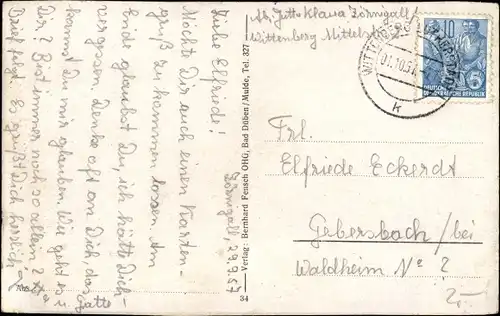 Zörnigall, 29.9.57
Liebe Elfriede!
Möchte Dir auch einen Karten-
gruß zukommen lassen. Am
Ende glaubst Du, ich hätte Dich
vergessen. Denke oft an Dich, das
kannst Du mir glauben. Wie geht es
Dir? Bist immer noch so allein?
Brief folgt. Es grüßt Dich herzlich
Jutta
Verlag: Bernhard Feusch OHG, Bad Düben/Mulde, Tel. 327
34
Abs. Jutta Klawa Zörnigall
Wittenberg
01.10.57
k
10
DEUTSCHE DEMOKRATISCHE REPUBLIK
5
Frl.
Elfriede Eckerdt
Gebersbach / bei
Waldheim No 2